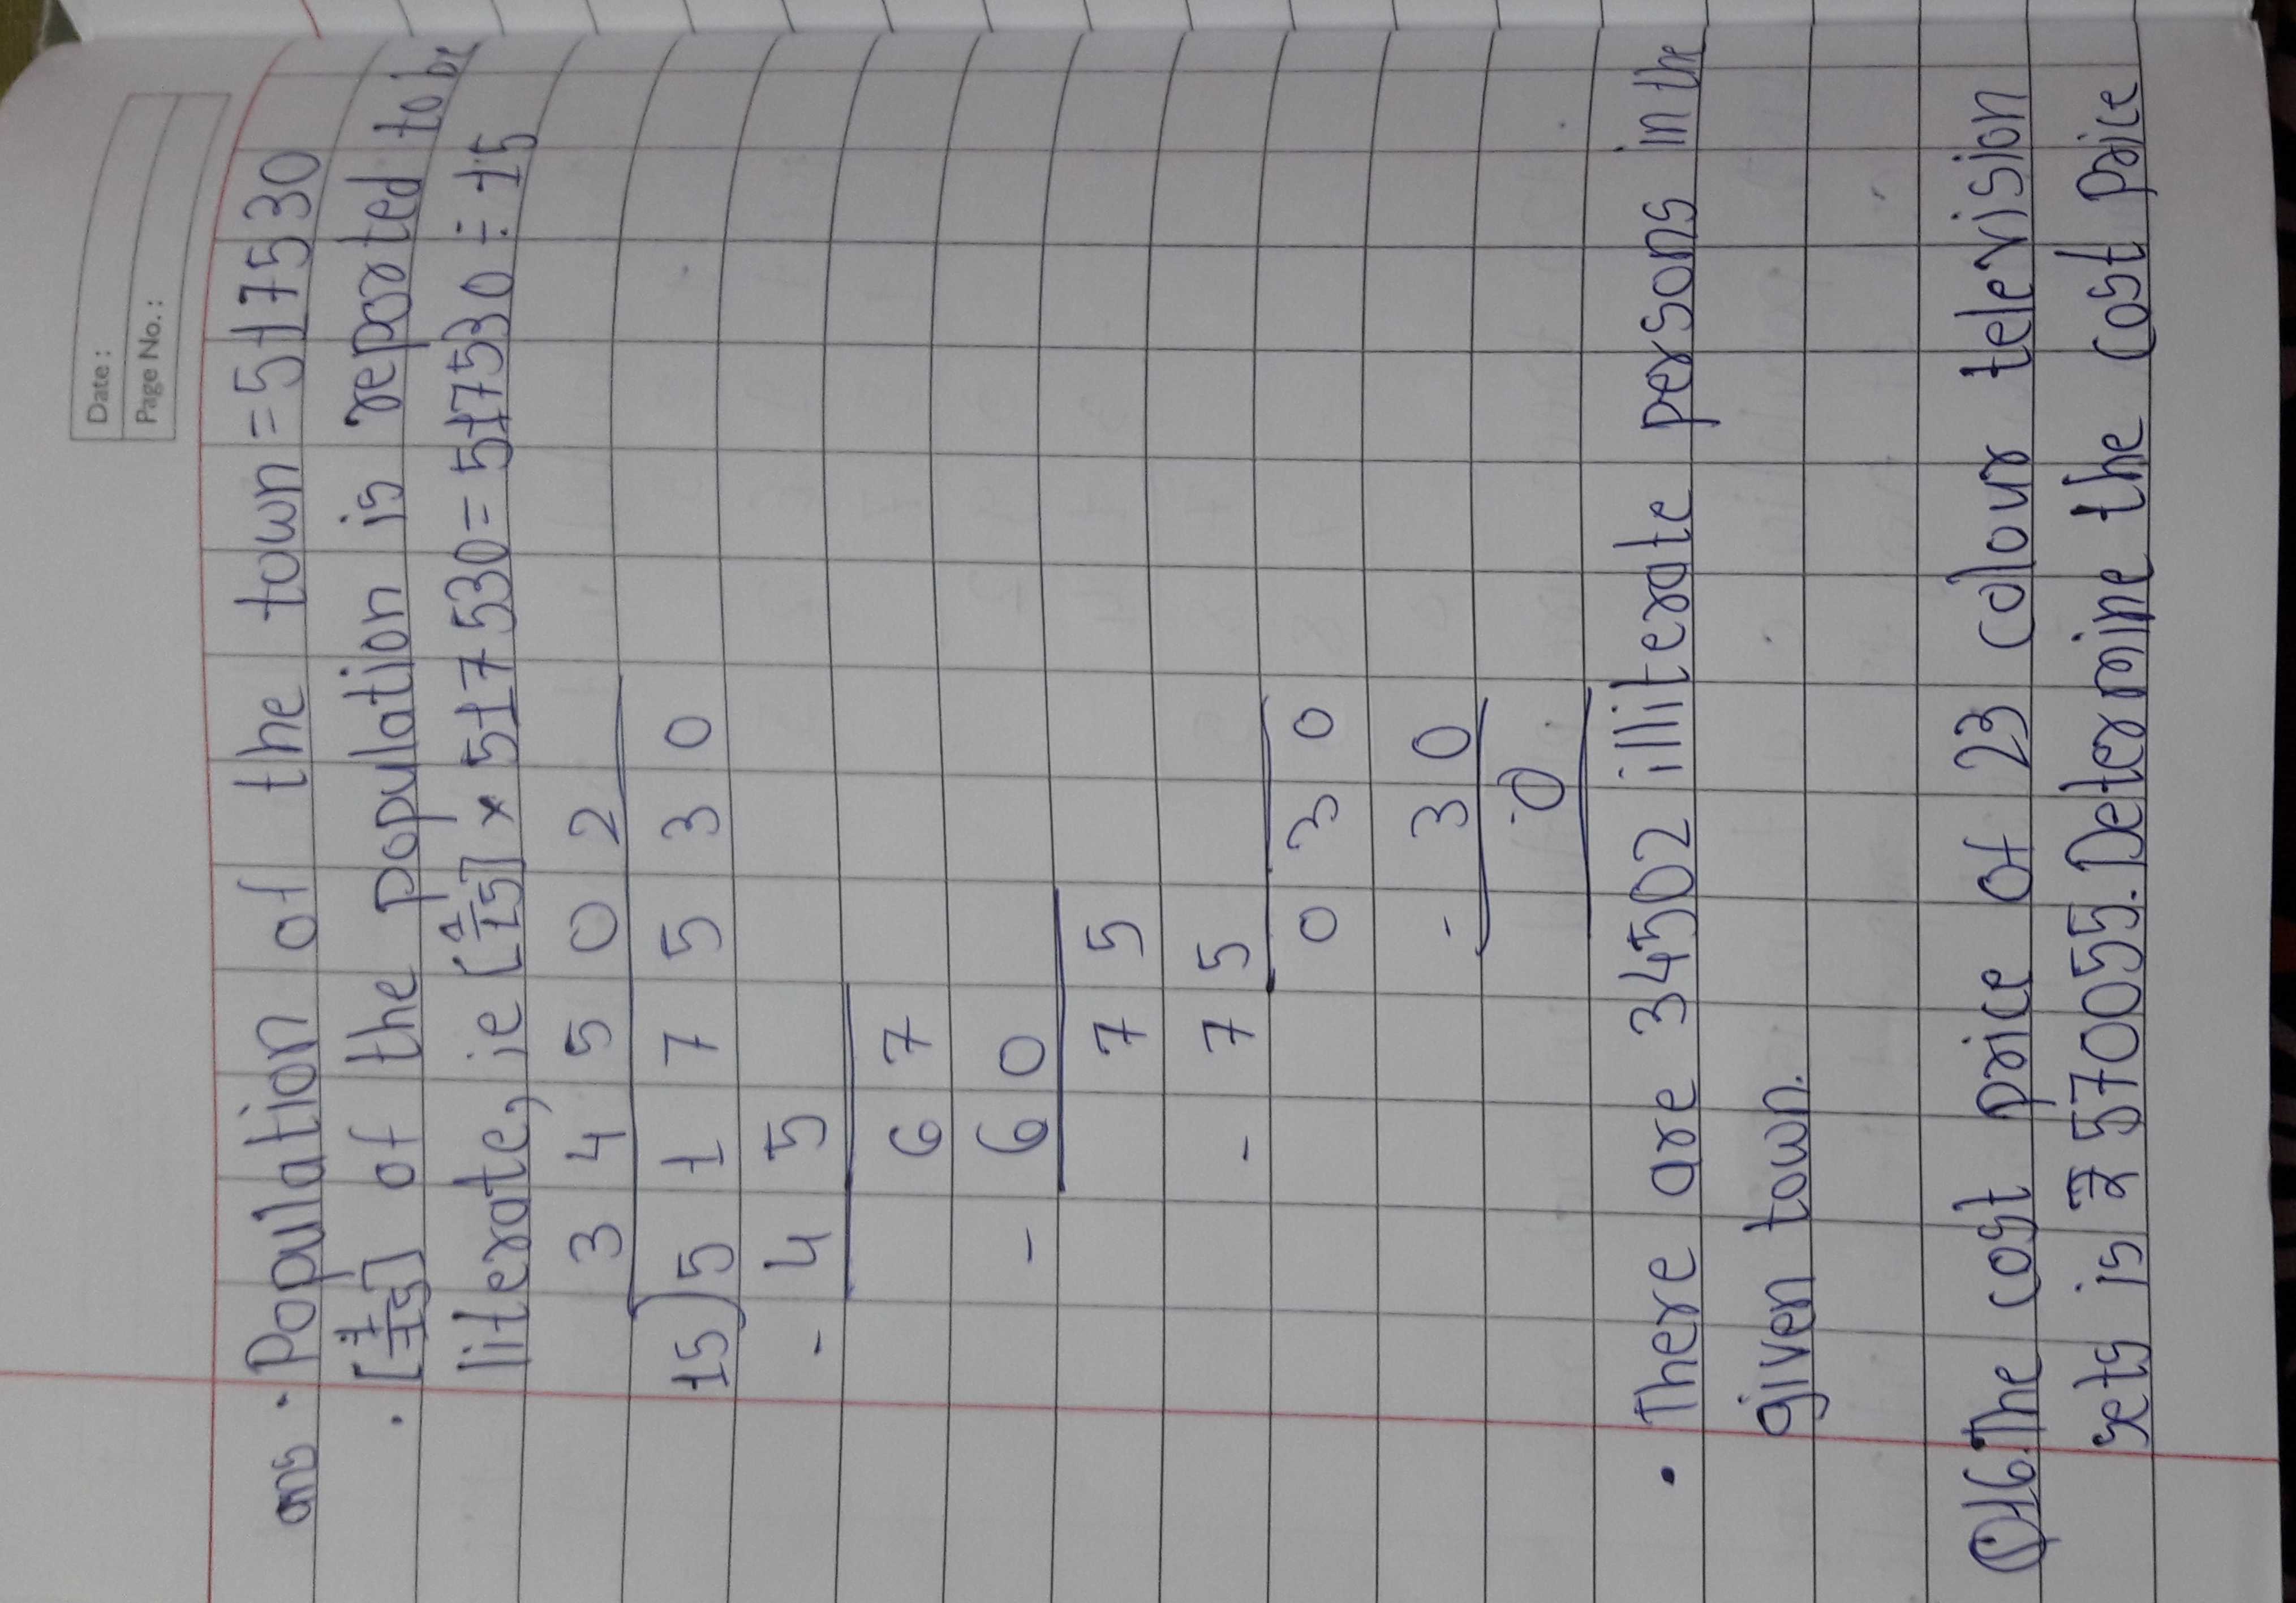 Date :
Page No. :
ans • Population of the town = 517530
• [1/15] of the population is reported to be
literate, ie [1/15] × 517530 = 517530 ÷ 15
3 4 5 0 2
15) 5 1 7 5 3 0
- 4 5
6 7
- 6 0
7 5
- 7 5
0 3 0
- 3 0
0
• There are 34502 illiterate persons in the
given town.
Q16. The cost price of 23 colour television
sets is ₹ 570055. Determine the cost price